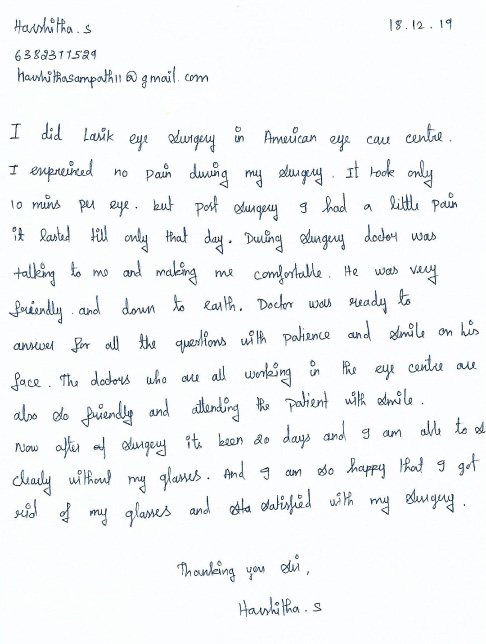 Harshitha.S 18.12.19
6382311529
harshithasampath11@gmail.com
I did Lasik eye surgery in American eye care centre.
I enpreinced no pain during my surgery. It took only
10 mins per eye. but post surgery I had a little pain
it lasted till only that day. During surgery doctor was
talking to me and making me comfortable. He was very
friendly and down to earth. Doctor was ready to
answer for all the questions with patience and smile on his
face. The doctors who are all working in the eye centre are
also so friendly and attending the patient with smile.
Now after surgery its been 20 days and I am able to s
clearly without my glasses. And I am so happy that I got
rid of my glasses and satisfied with my surgery.
Thanking you sir,
Harshitha.S